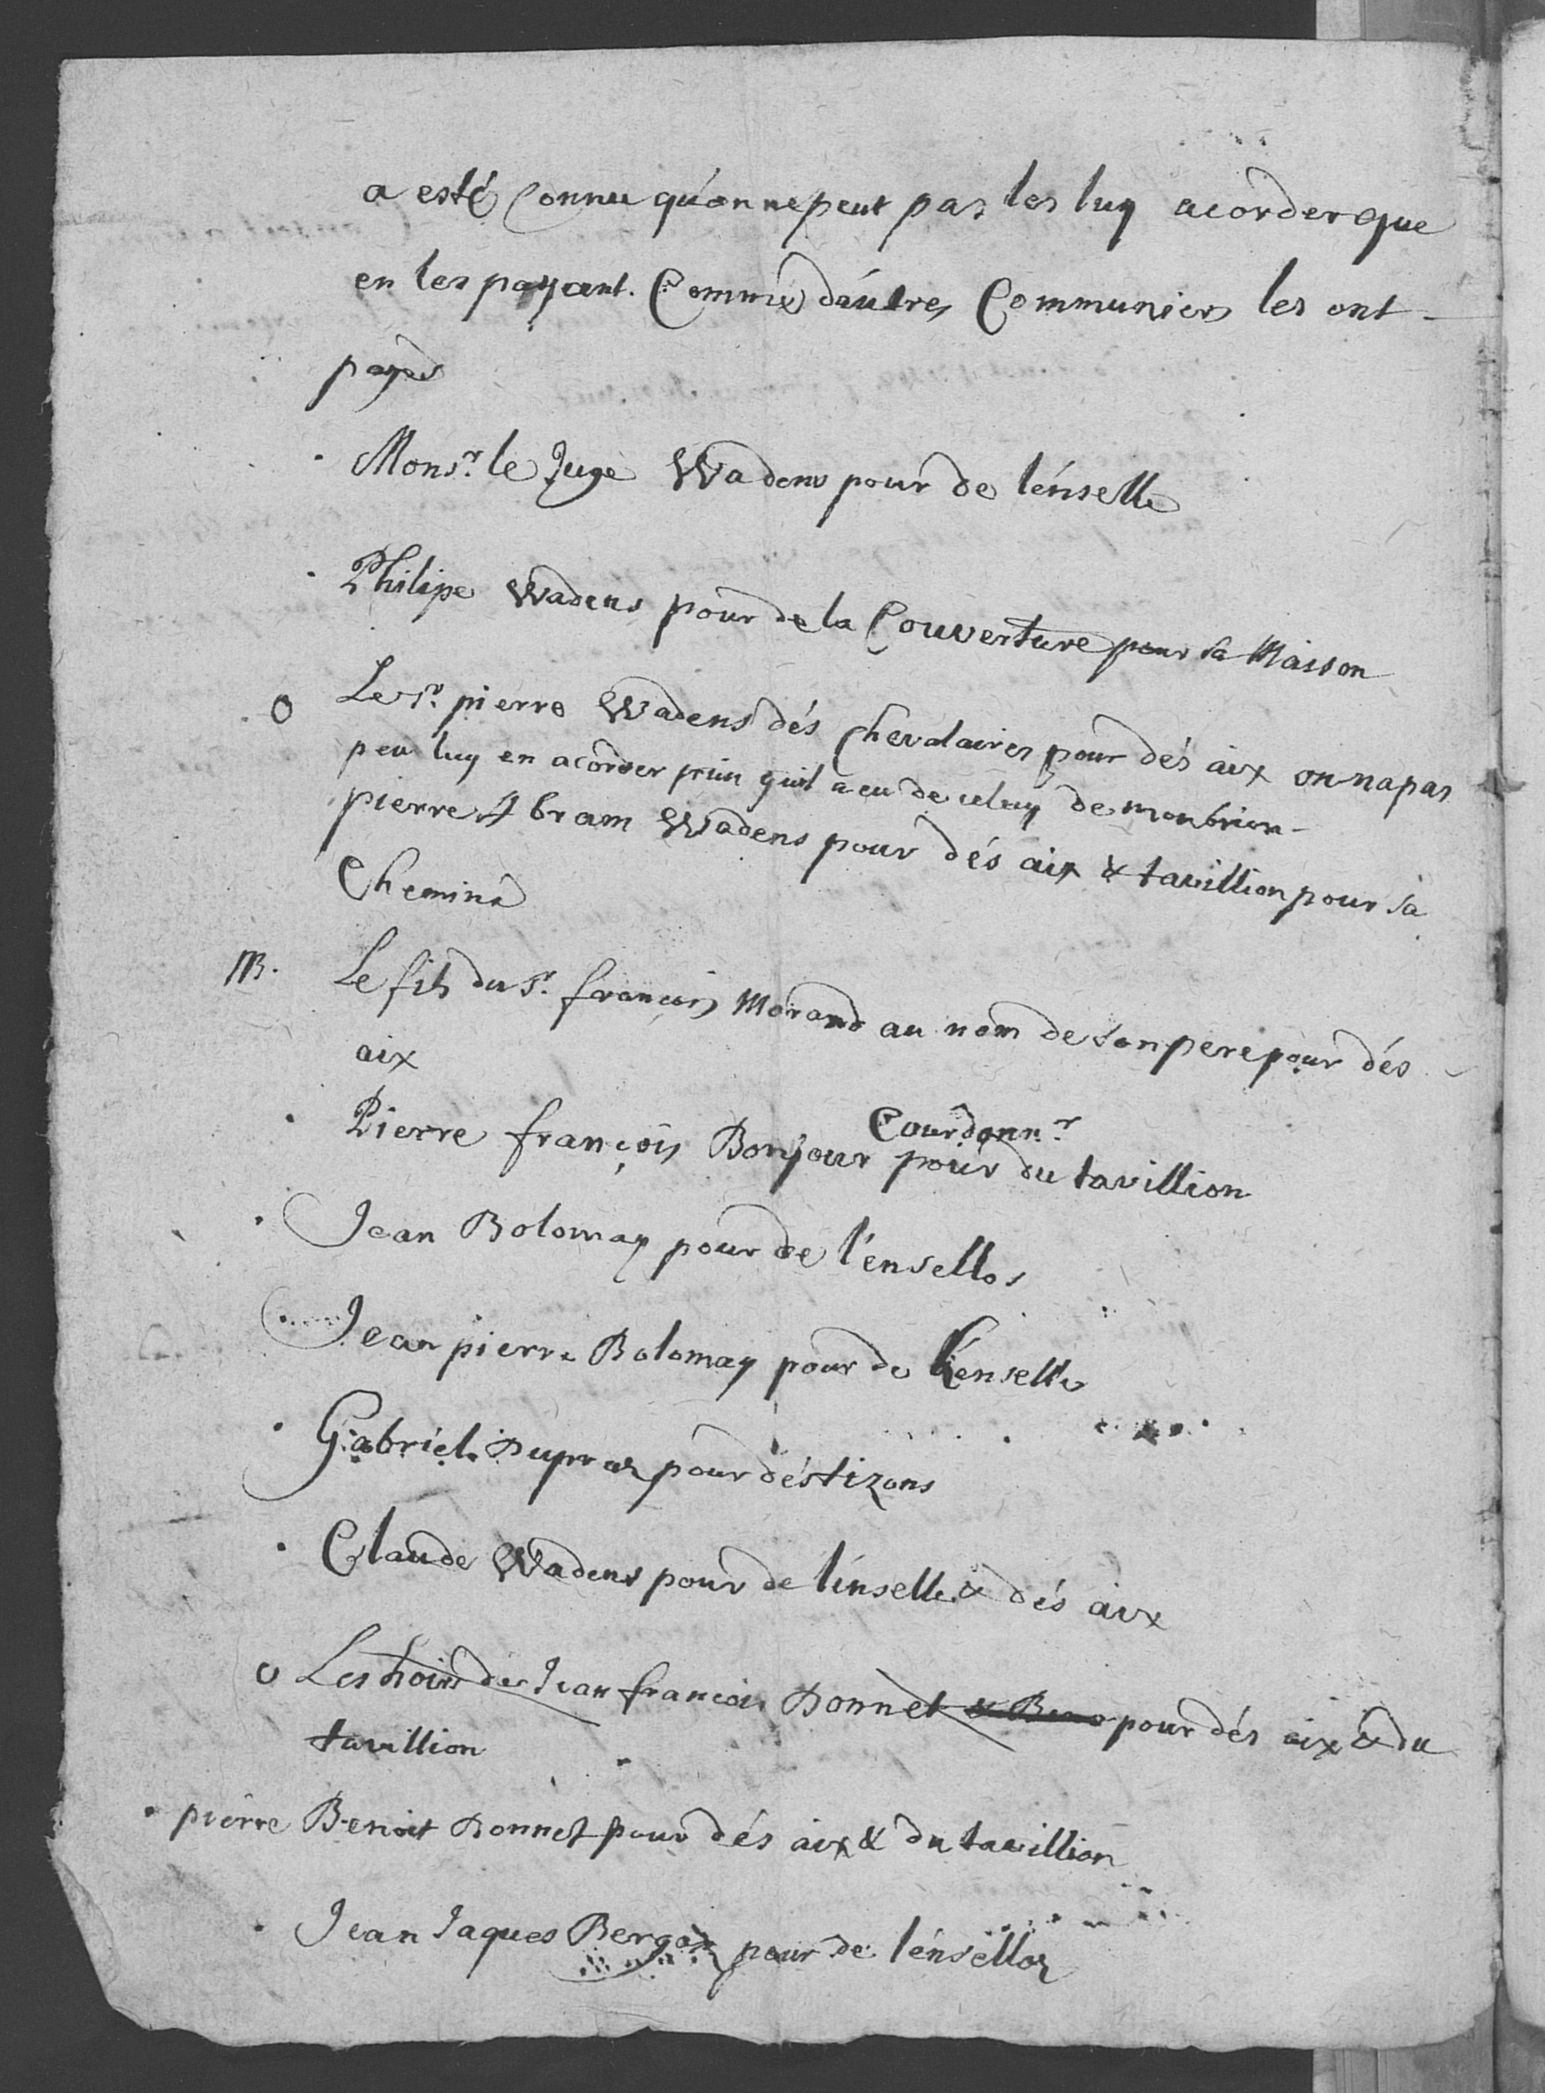 a esté Connu qu'on ne peut pas les luy acorder que
en les payant. Comme d'autres Communiers les ont
payés
. Monsr. le Juge Wadens pour de l'énselle
. Philipe Wadens pour de la Couverture pour sa Maison
o Le sr. pierre Wadens dés Chevalaires pour dés aix on na pas
peu luy en acorder quil a eu de celuy de monbrion
pierre Abram Wadens pour dés aix & tavillion pour sa
Cheminé
Le fils du sr. françois Morand au nom de son pere pour dés
aix
Courdonnr
. Pierre françois Bonjour pour du tavillion
. Jean Bolomay pour de l'énselles
. Jean pierre Bolomay pour de l'énselle
. Gabriel Dupraz pour dés tizons
. Claude Wadens pour de l'énselle & dés aix
o Les hoirs de Jean françois Donnet & pour dés aix & du
tavillion
. pierre Benoit Donnet pour dés aix & du tavillion
. Jean Jaques pour de l'énselle